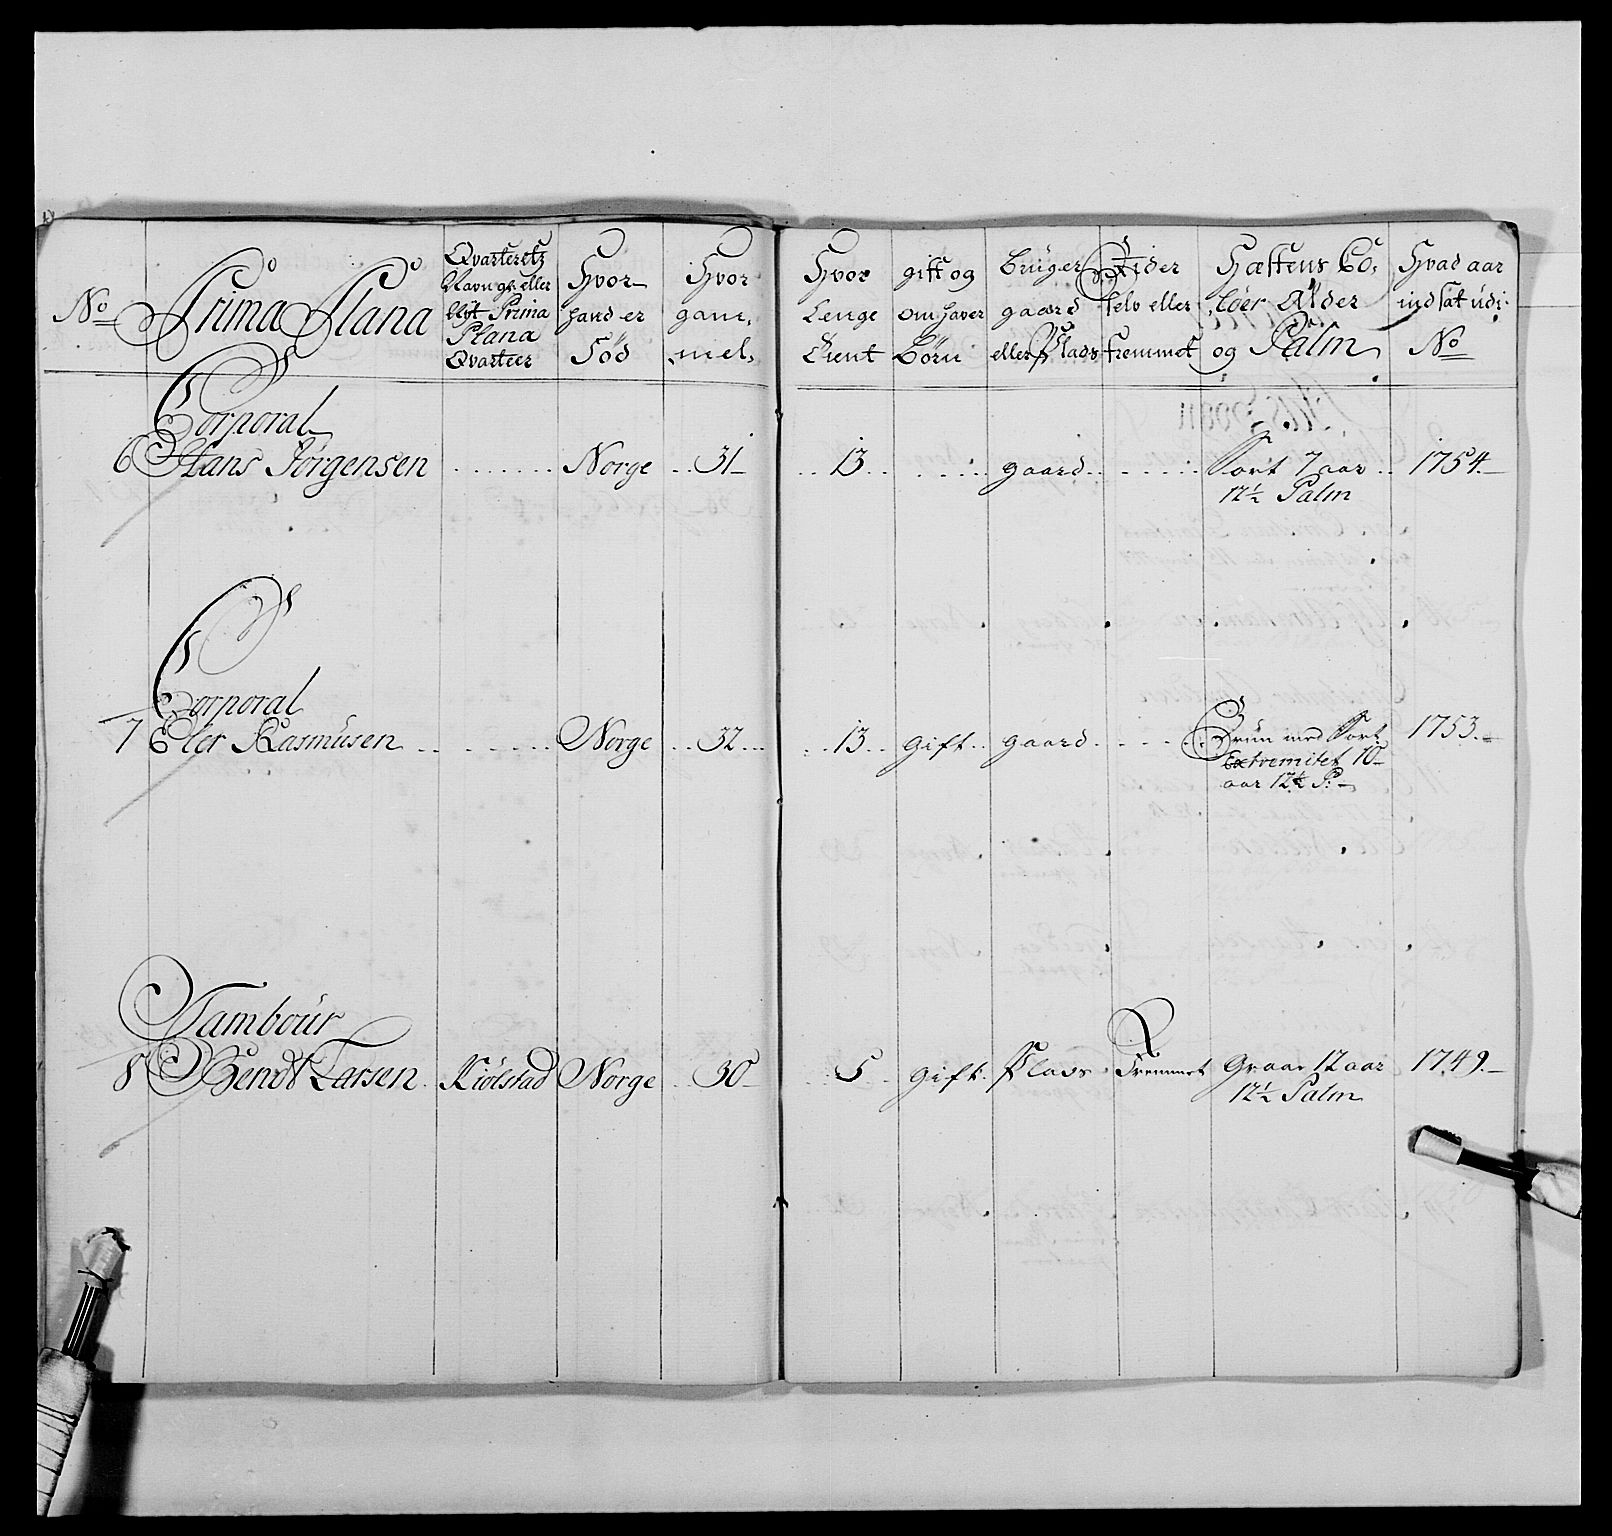 No
Prima Plana
Qvarteretz
Navn gl. eller
Nyt Prima
Plana
Qvarteer
Hvor
hand er
Föd
Hvor
gam,
mel,
Hvor
Lenge
tient
gift og
om haver
Börn
Bruger
gaard
eller Plads
Rider
selv eller
fremmet
Hæstens Co,
löer Alder
og Palm
Hvad aar
indsat udi
No
Corporal
6 Hans Jörgensen Norge 31 13 gaard Sort 7 aar 1754
12½ Palm
Corporal
7 Eler Rasmüsen Norge 32 13 gift gaard Brün med Sort 1753
Extremitet 10
aar 12½ P:
Tambour
8 Bendt Larsen Kiölstad Norge 30 5 gift Plads Fremmet Graae 12 aar 1749
12½ Palm